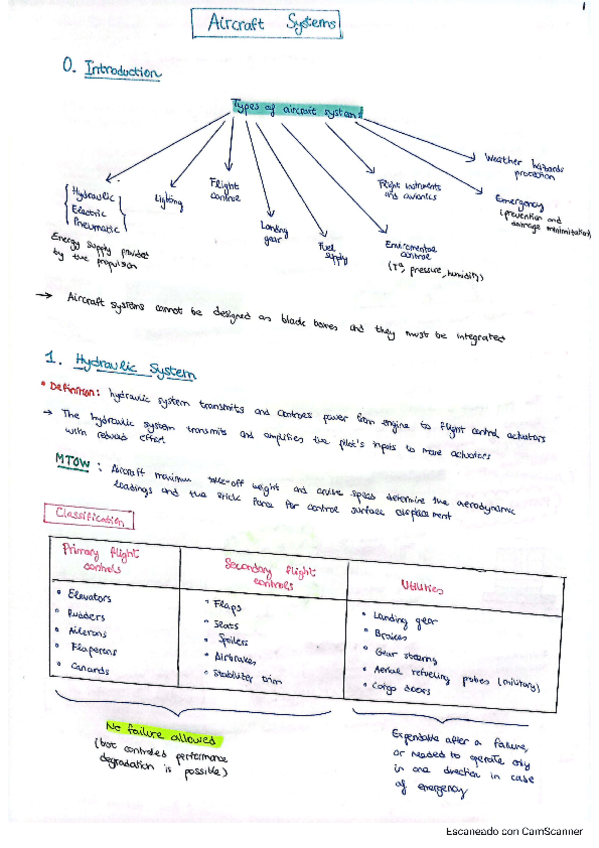 1
Aircraft Systems
0. Introduction
Types of aircraft systems
Hydraulic
Electric
Pneumatic
Energy supply provided
by the propulsion
Lighting
Flight
control
Landing
gear
Fuel
supply
Enviromental
control
(Tª, pressure, humidity)
Flight instruments
and avionics
Emergency
(prevention and
damage minimitation)
Weather hazards
protection
→ Aircraft systems cannot be designed as black boxes and they must be integrated
1. Hydraulic System
• Definition: hydraulic system transmits and controls power from engine to flight control actuators
→ The hydraulic system transmits and amplifies the pilot's inputs to move actuators
with reduced effort
MTOW: Aircraft maximum take-off weight and cruise speed determine the aerodynamic
loadings and the stick force for control surface displacement
Classification
Primary flight
controls
• Elevators
• Rudders
• Ailerons
• Flaperons
• Canards
Secondary flight
controls
• Flaps
• Slats
• Spoilers
• Airbrakes
• Stability trim
Utilities
• Landing gear
• Brakes
• Gear steering
• Aerial refueling probes (military)
• Cargo doors
No failure allowed
(but controlled performance
degradation is possible)
Expendable after a failure,
or needed to operate only
in one direction in case
of emergency
Escaneado con CamScanner